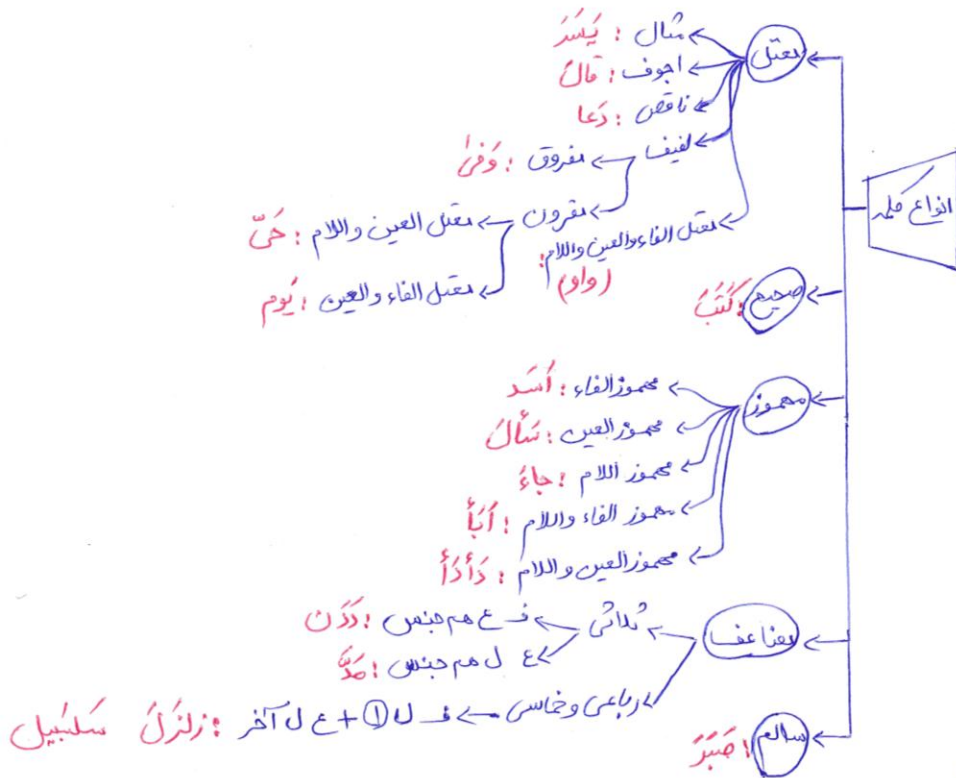 انواع کلمه
معتل
مثال : یَسَرَ
اجوف : قالَ
ناقص : دَعا
لفیف
مفروق : وَفیٰ
مقرون
معتل العین واللام : حَیَّ
معتل الفاء والعین : یَوم
معتل الفاء والعین واللام :
(واو)
صحیح : کَتَبَ
مهموز
مهموز الفاء : أسَد
مهموز العین : سَألَ
مهموز اللام : جاءَ
مهموز الفاء واللام : أبَأ
مهموز العین واللام : دَأدَأ
مضاعف
ثلاثی
ف ع هم جنس : دَدَن
ع ل هم جنس : مَدَّ
رباعی و خماسی
ف ل ① + ع ل آخر : زلزَلَ سَلسَبیل
سالم : صَبَرَ